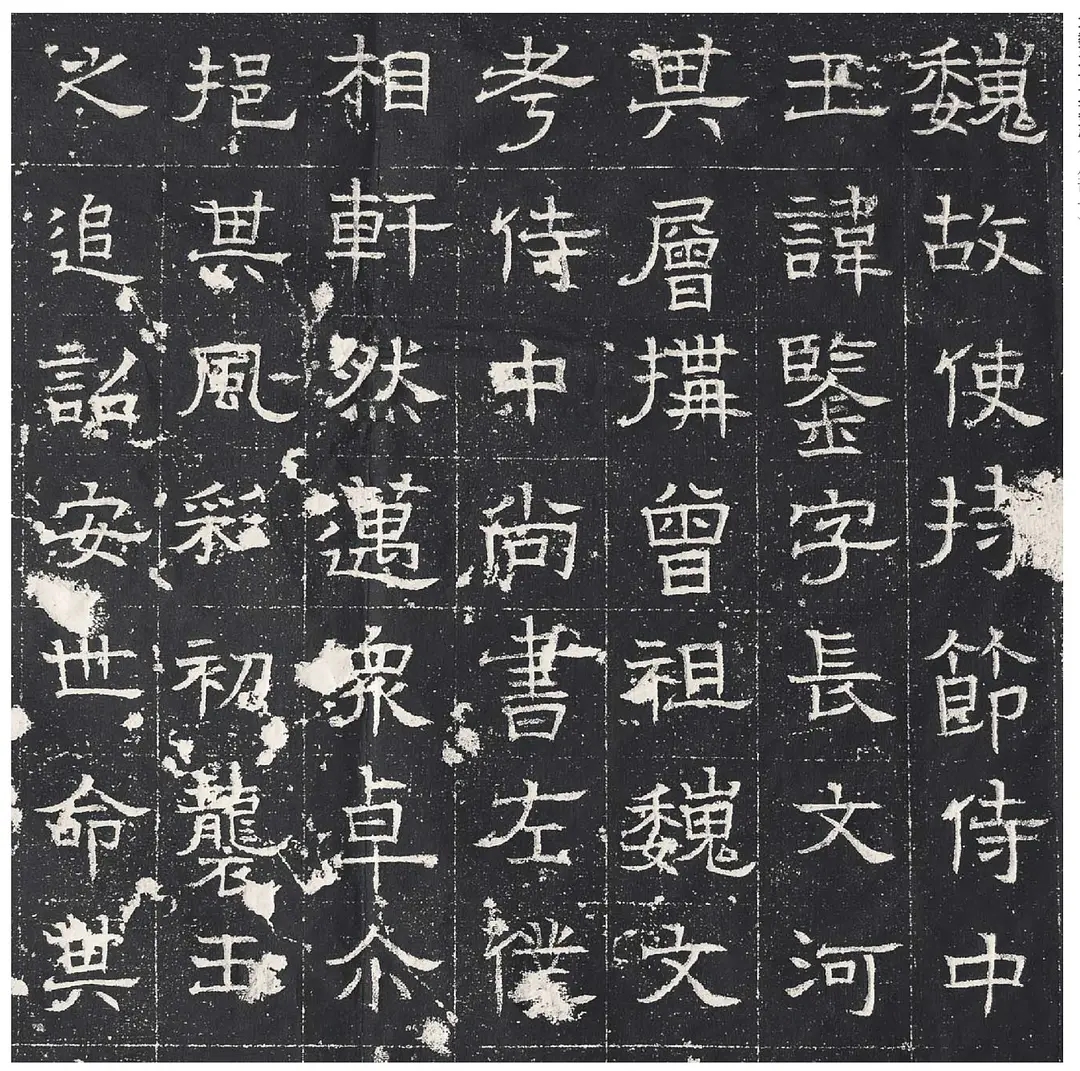 魏故使持節侍中
王諱鑒字長文河
其層搆曾祖魏文
考侍中尚書左僕
相軒然邁衆卓尒
挹其風彩初襲王
之追詔安世命其